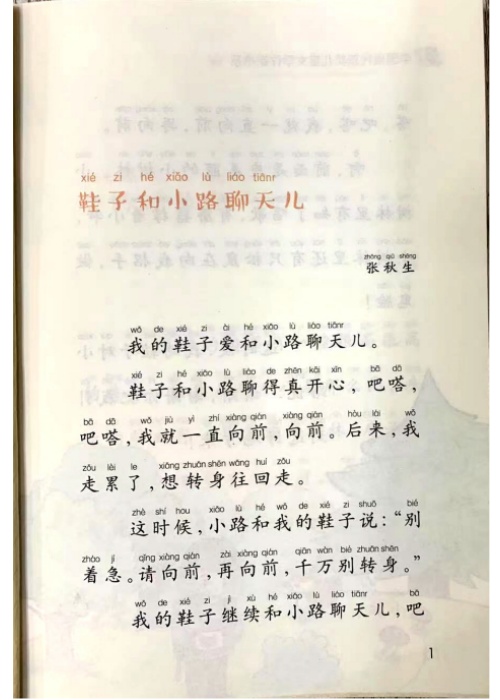 xié zi hé xiǎo lù liáo tiānr
鞋子和小路聊天儿
zhāng qiū shēng
张秋生
wǒ de xié zi ài hé xiǎo lù liáo tiānr
我的鞋子爱和小路聊天儿。
xié zi hé xiǎo lù liáo de zhēn kāi xīn bā dā
鞋子和小路聊得真开心，吧嗒，
bā dā wǒ jiù yì zhí xiàng qián xiàng qián hòu lái wǒ
吧嗒，我就一直向前，向前。后来，我
zǒu lèi le xiǎng zhuǎn shēn wǎng huí zǒu
走累了，想转身往回走。
zhè shí hou xiǎo lù hé wǒ de xié zi shuō bié
这时候，小路和我的鞋子说：“别
zháo jí qǐng xiàng qián zài xiàng qián qiān wàn bié zhuǎn shēn
着急。请向前，再向前，千万别转身。”
wǒ de xié zi jì xù hé xiǎo lù liáo tiānr bā
我的鞋子继续和小路聊天儿，吧
1